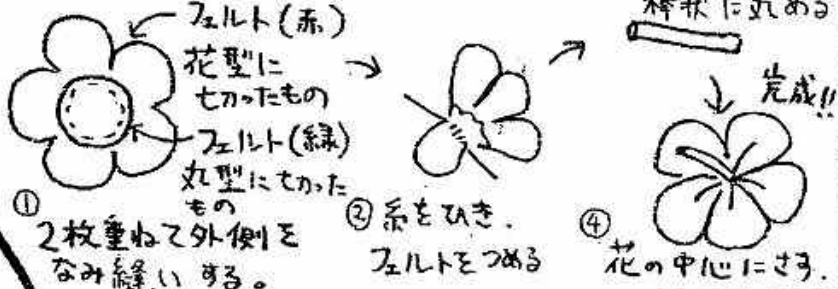 フェルト(赤)
花型に
切ったもの
フェルト(緑)
丸型に切った
もの
①
2枚重ねて外側を
なみ縫いする。
②糸をひき、
フェルトをつめる
棒状に丸める
完成!!
④
花の中心にさす.